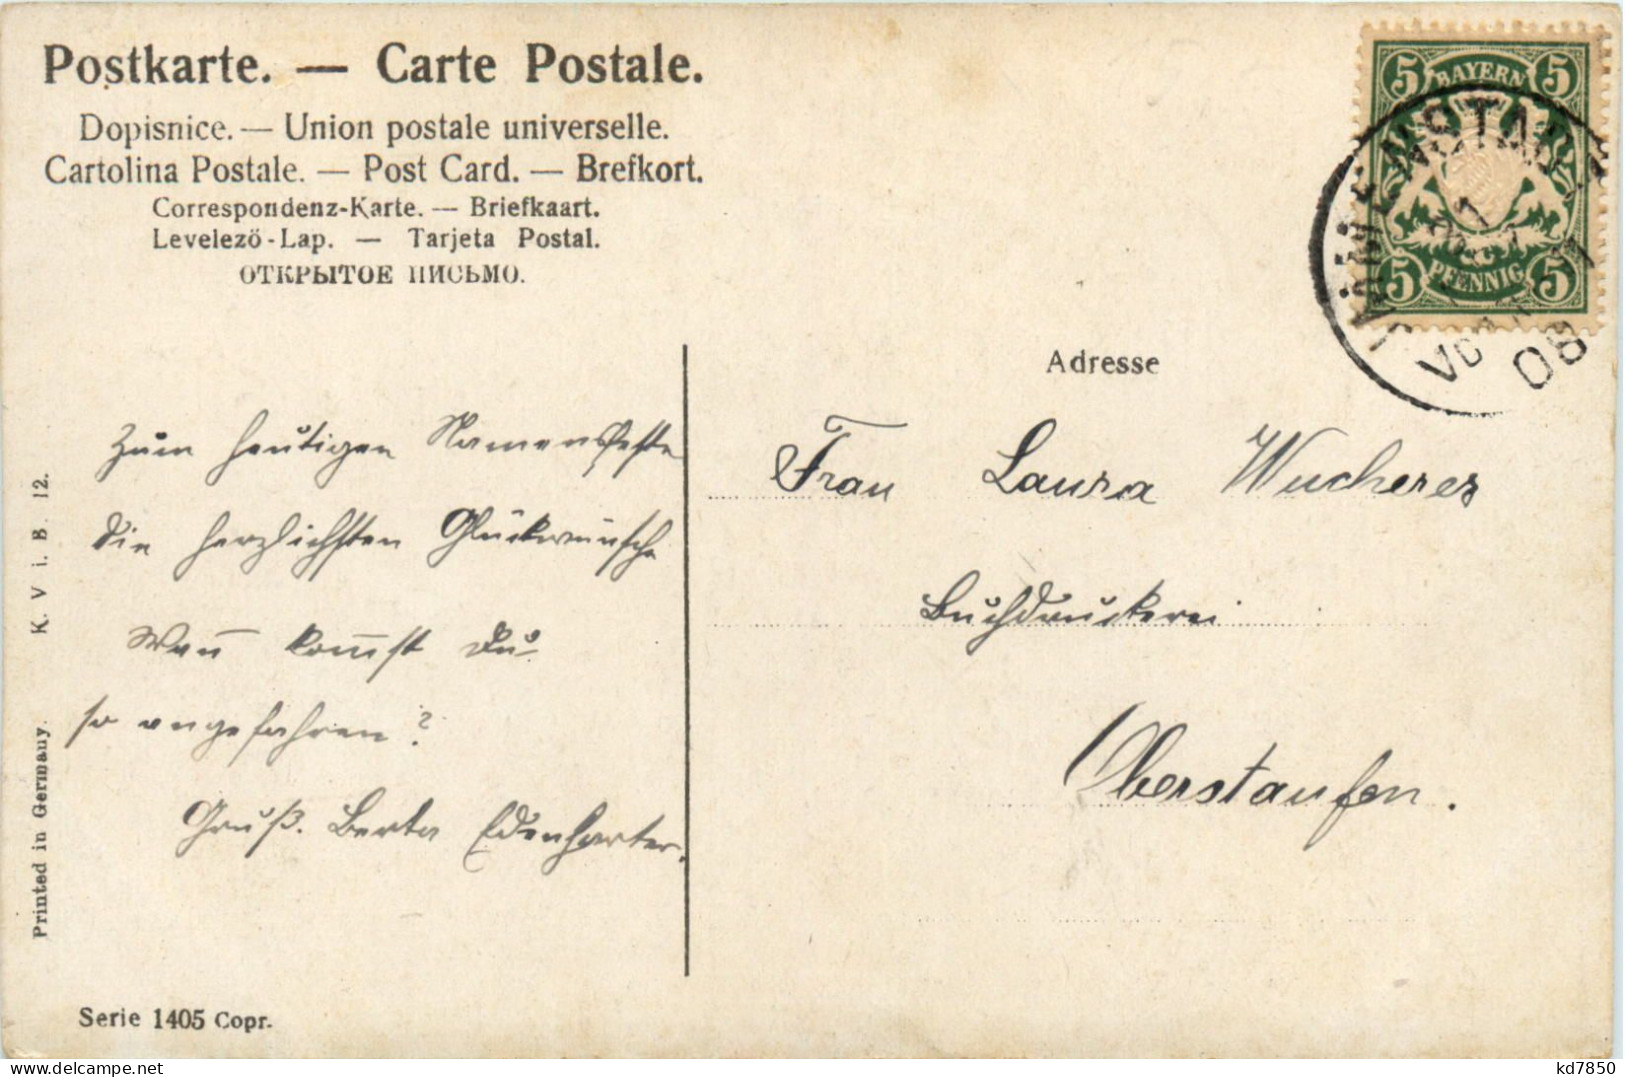 Postkarte. — Carte Postale.
Dopisnice. — Union postale universelle.
Cartolina Postale. — Post Card. — Brefkort.
Correspondenz-Karte. — Briefkaart.
Levelezö-Lap. — Tarjeta Postal.
ОТКРЫТОЕ ПИСЬМО.
5 BAYERN 5
5 PFENNIG 5
08
Adresse
Zum heutigen Namensfeste
die herzlichsten Glückwünsche
Wann kommst Du
so angefahren?
Gruß. Berta Edenharter.
Frau Laura Wucherer
Buchdruckerei
Oberstaufen.
K. V i. B. 12.
Printed in Germany.
Serie 1405 Copr.
kd7850